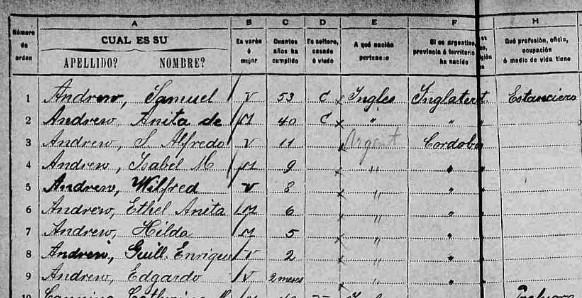 Número de orden A CUAL ES SU APELLIDO? NOMBRE? B Es varón ó mujer C Cuantos años ha cumplido D Es soltero, casado ó viudo E A qué nación pertenece F Si es argentino, provincia ó territorio ha nacido H Qué profesión, oficio, ocupación ó medio de vida tiene
1 Andrew, Samuel V 53 C Ingles Inglaterr Estanciero
2 Andrew Anita de M 40 C " " "
3 Andrew, S Alfredo V 11 Argent Cordoba
4 Andrew, Isabel M M 9 " "
5 Andrew, Wilfred V 8 " "
6 Andrew, Ethel Anita M 6 " "
7 Andrew, Hilda M 5 " "
8 Andrew, Guill. Enrique V 2 " "
9 Andrew, Edgardo V 2 meses " "
10